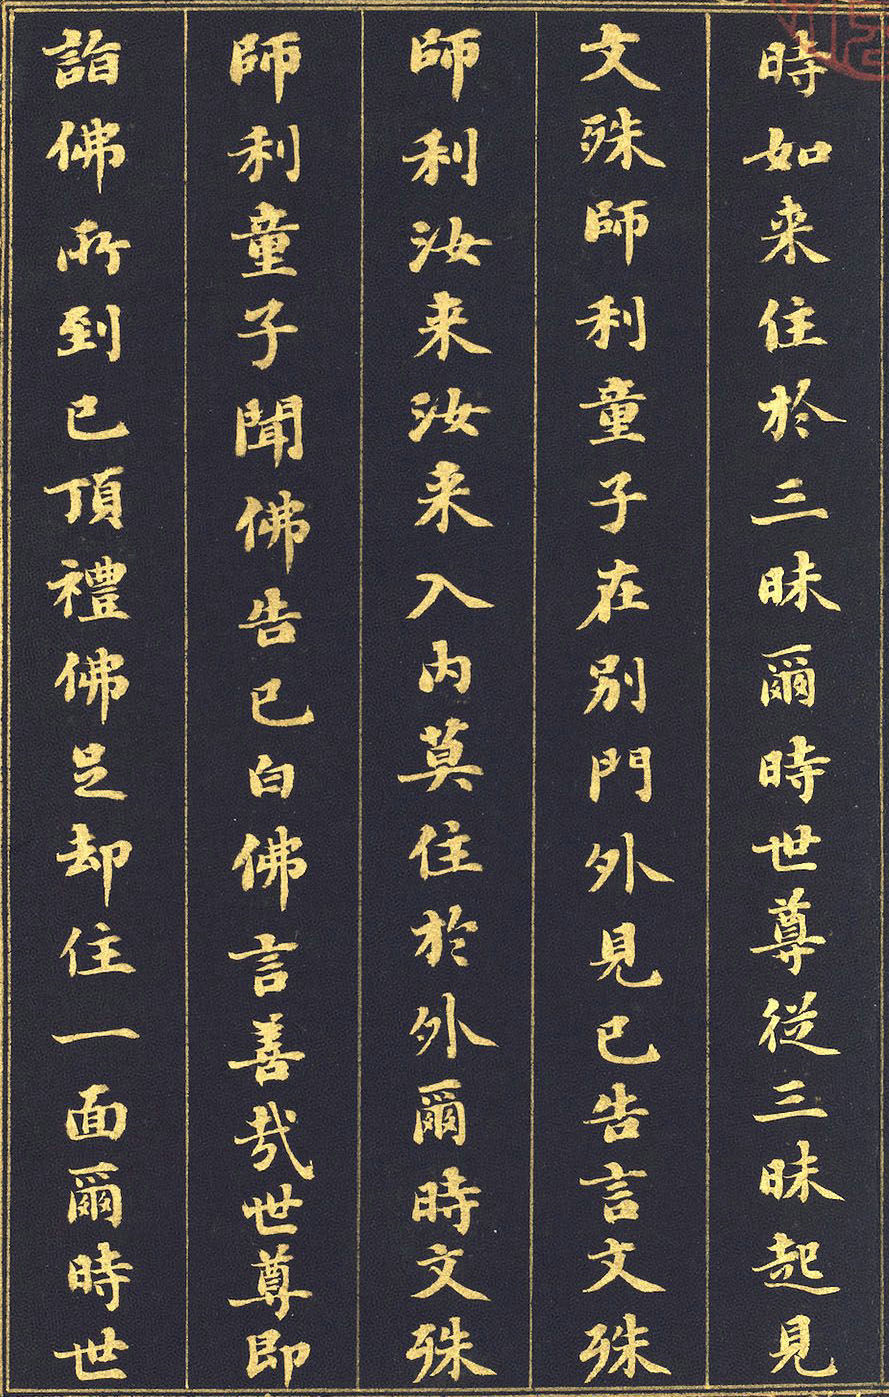 時如来住於三昧爾時世尊従三昧起見
文殊師利童子在別門外見已告言文殊
師利汝来汝来入内莫住於外爾時文殊
師利童子聞佛告已白佛言善哉世尊即
詣佛所到已頂禮佛足却住一面爾時世